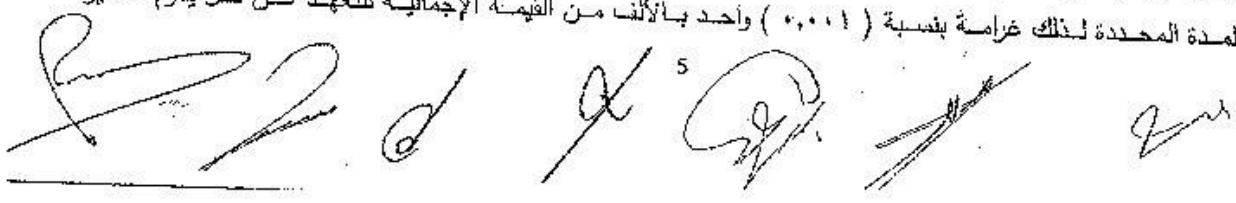 لمدة المحددة لذلك غرامة بنسبة ( ٠,٠٠١ ) واحد بالألف من القيمة الإجمالية للتعهد عن
5